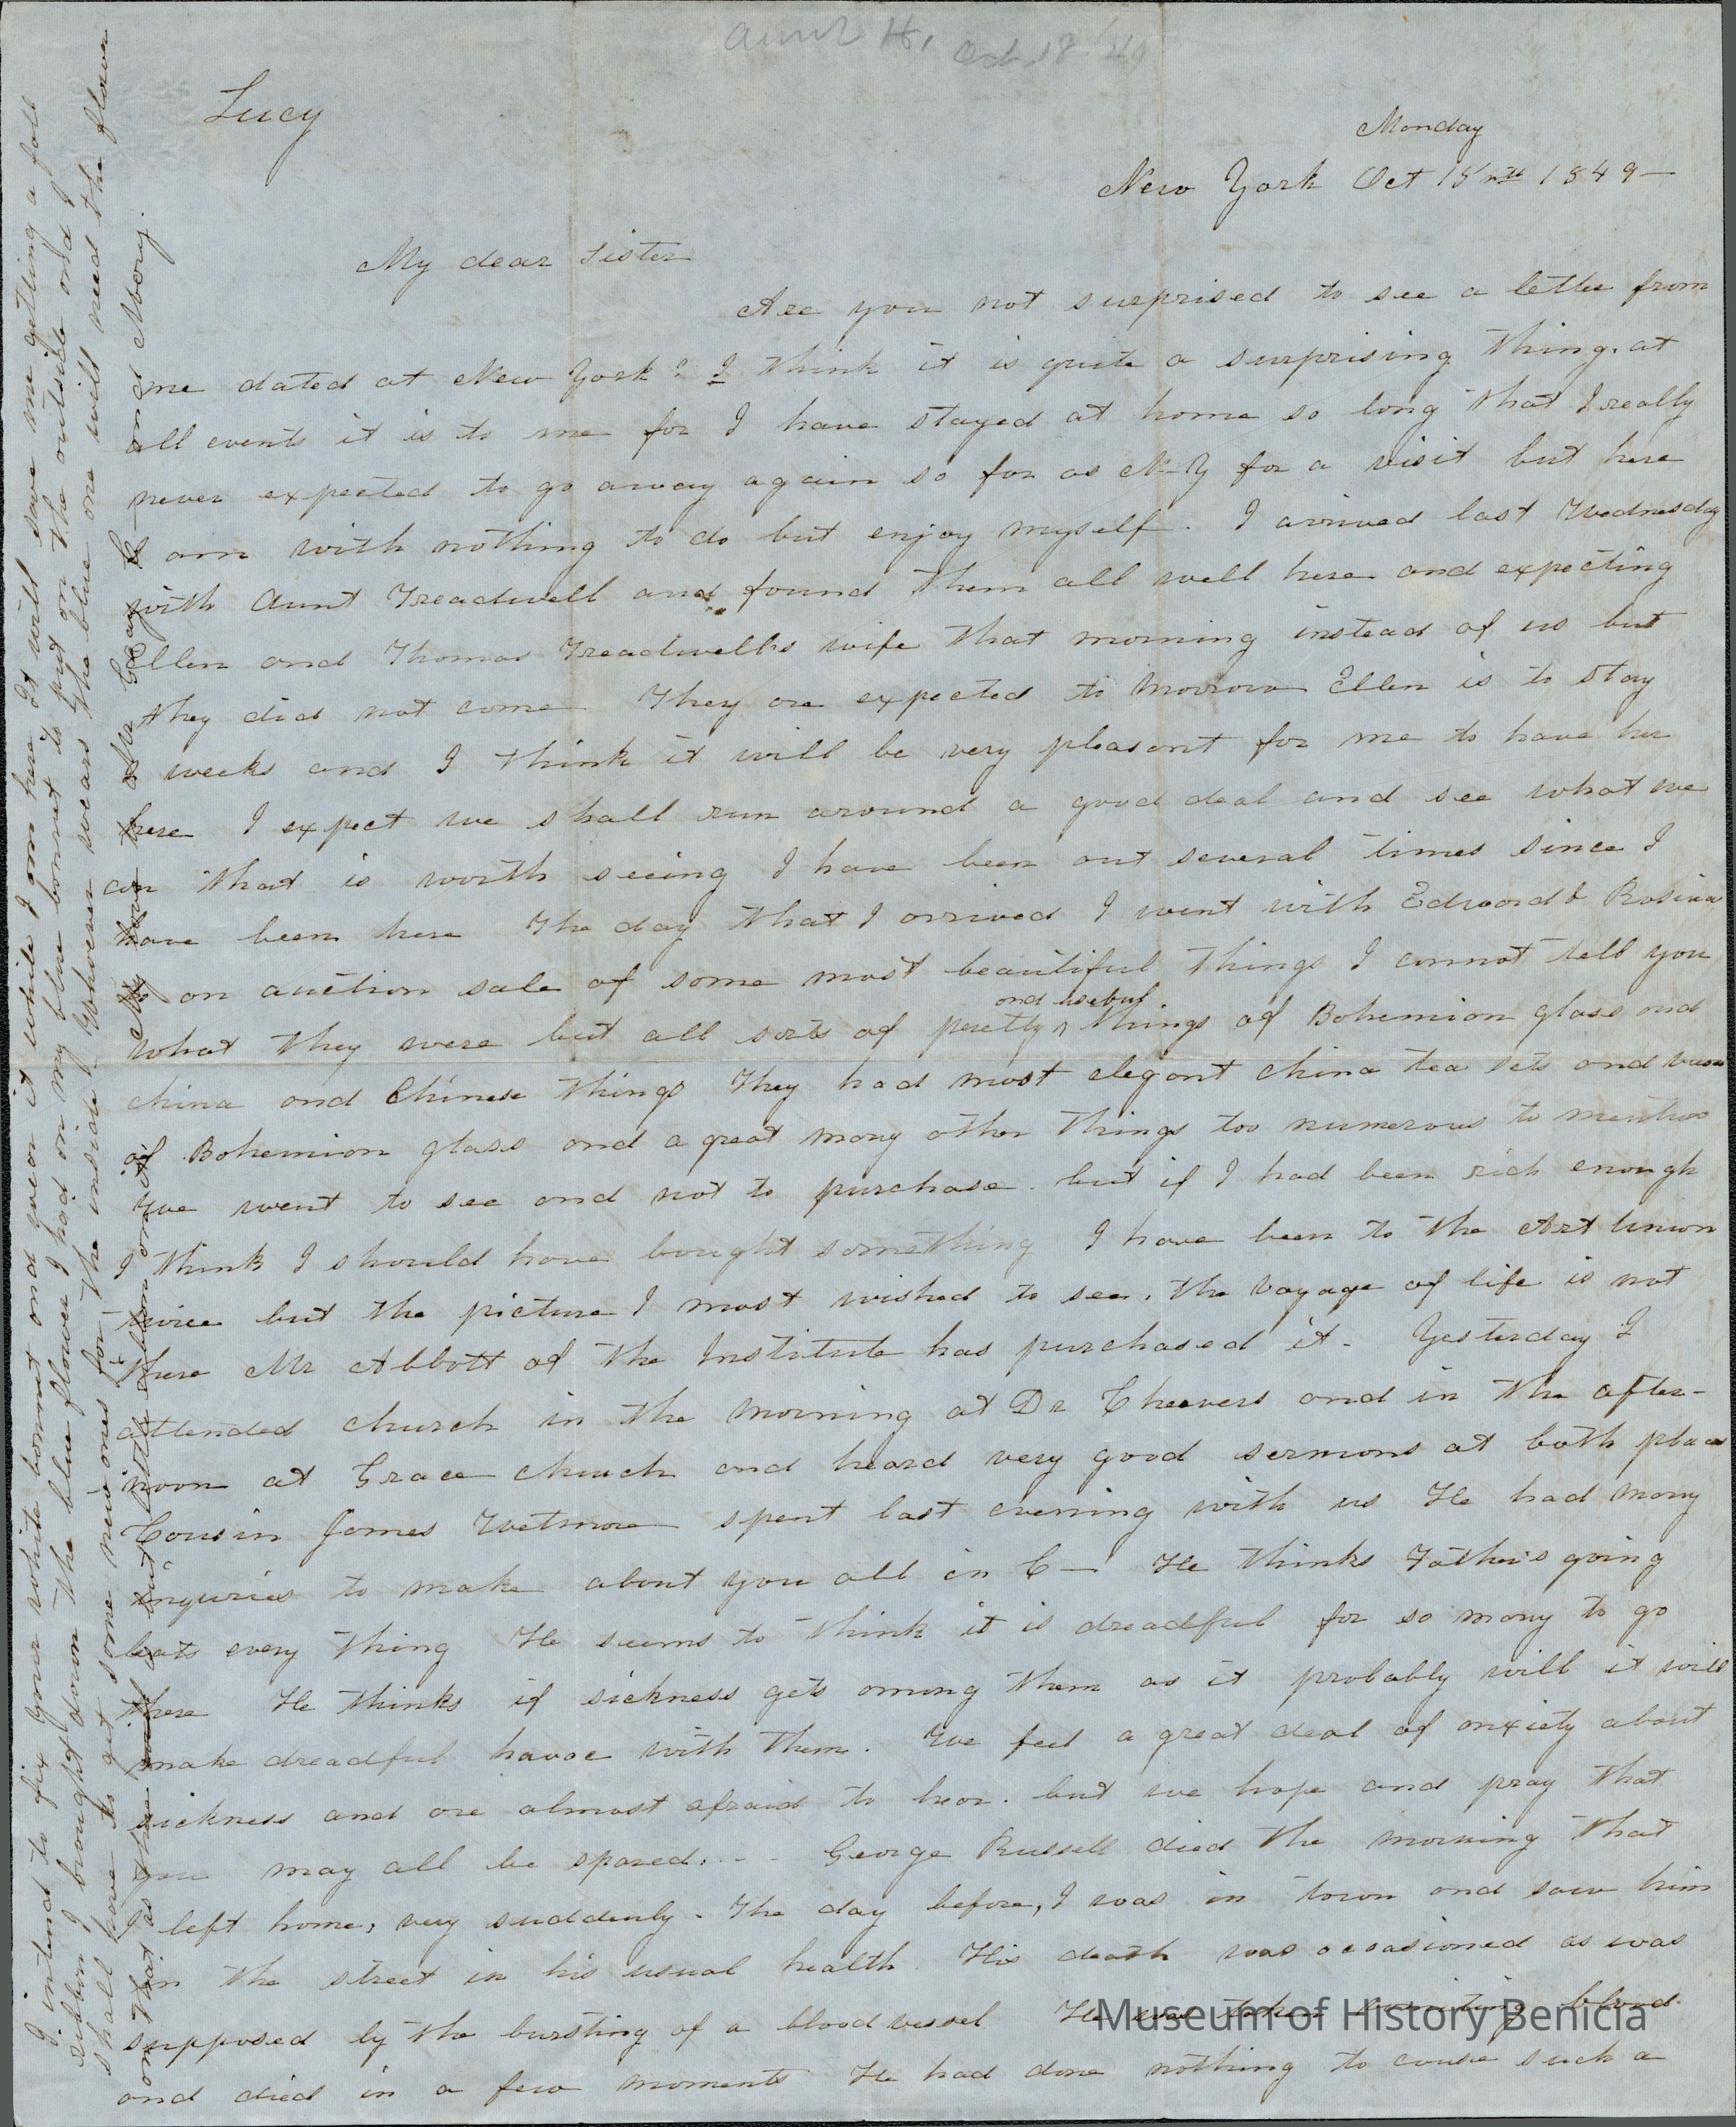 Aunt H. Oct 18 '49
Lucy
Monday
New York Oct 15th 1849—
My dear Sister
Are you not surprised to see a letter from
me dated at New York? I think it is quite a surprising thing. at
all events it is to me for I have stayed at home so long that I really
never expected to go away again so far as N-Y for a visit but here
I am with nothing to do but enjoy myself. I arrived last Wednesday
with Aunt Treadwell and found them all well here and expecting
Ellen and Thomas Treadwell's wife that morning instead of us but
they did not come They are expected to morrow Ellen is to stay
weeks and I think it will be very pleasant for me to have her
here I expect we shall run around a good deal and see what we
can that is worth seeing I have been out several times since I
have been here The day that I arrived I went with Edward & Rosina
to an auction sale of some most beautiful things I cannot tell you
what they were but all sorts of pretty and useful things of Bohemian glass and
china and Chinese things They had most elegant china tea sets and vases
of Bohemian glass and a great many other things too numerous to mention
We went to see and not to purchase. but if I had been rich enough
I think I should have bought something I have been to the Art Union
twice but the picture I most wished to see, the Voyage of life is not
there Mr Abbott of the Institute has purchased it- Yesterday I
attended church in the morning at Dr Cheevers and in the after-
noon at Grace church and heard very good sermons at both places
Cousin James Wetmore spent last evening with us He had many
inquries to make about you all in C— He thinks Father's going
beats every thing He seems to think it is dreadful for so many to go
there He thinks if sickness gets among them as it probably will it will
make dreadful havoc with them. We feel a great deal of anxiety about
sickness and are almost afraid to hear. but we hope and pray that
you may all be spared. - - George Russell died the morning that
I left home, very suddenly. The day before, I was in town and saw him
in the street in his usual health. His death was occasioned as was
supposed by the bursting of a blood vessel He was taken vomiting blood
and died in a few moments He had done nothing to cause such a
I intend to fix your white bonnet and wear it while I am here It will save me getting a fall
ribbon I brought down the blue flower I had on my blue bonnet is put on the outside and I
shall have to get some new ones for the inside. Whoever wears the blue one will need the flower
on that as there
and Mary.
Museum of History Benicia